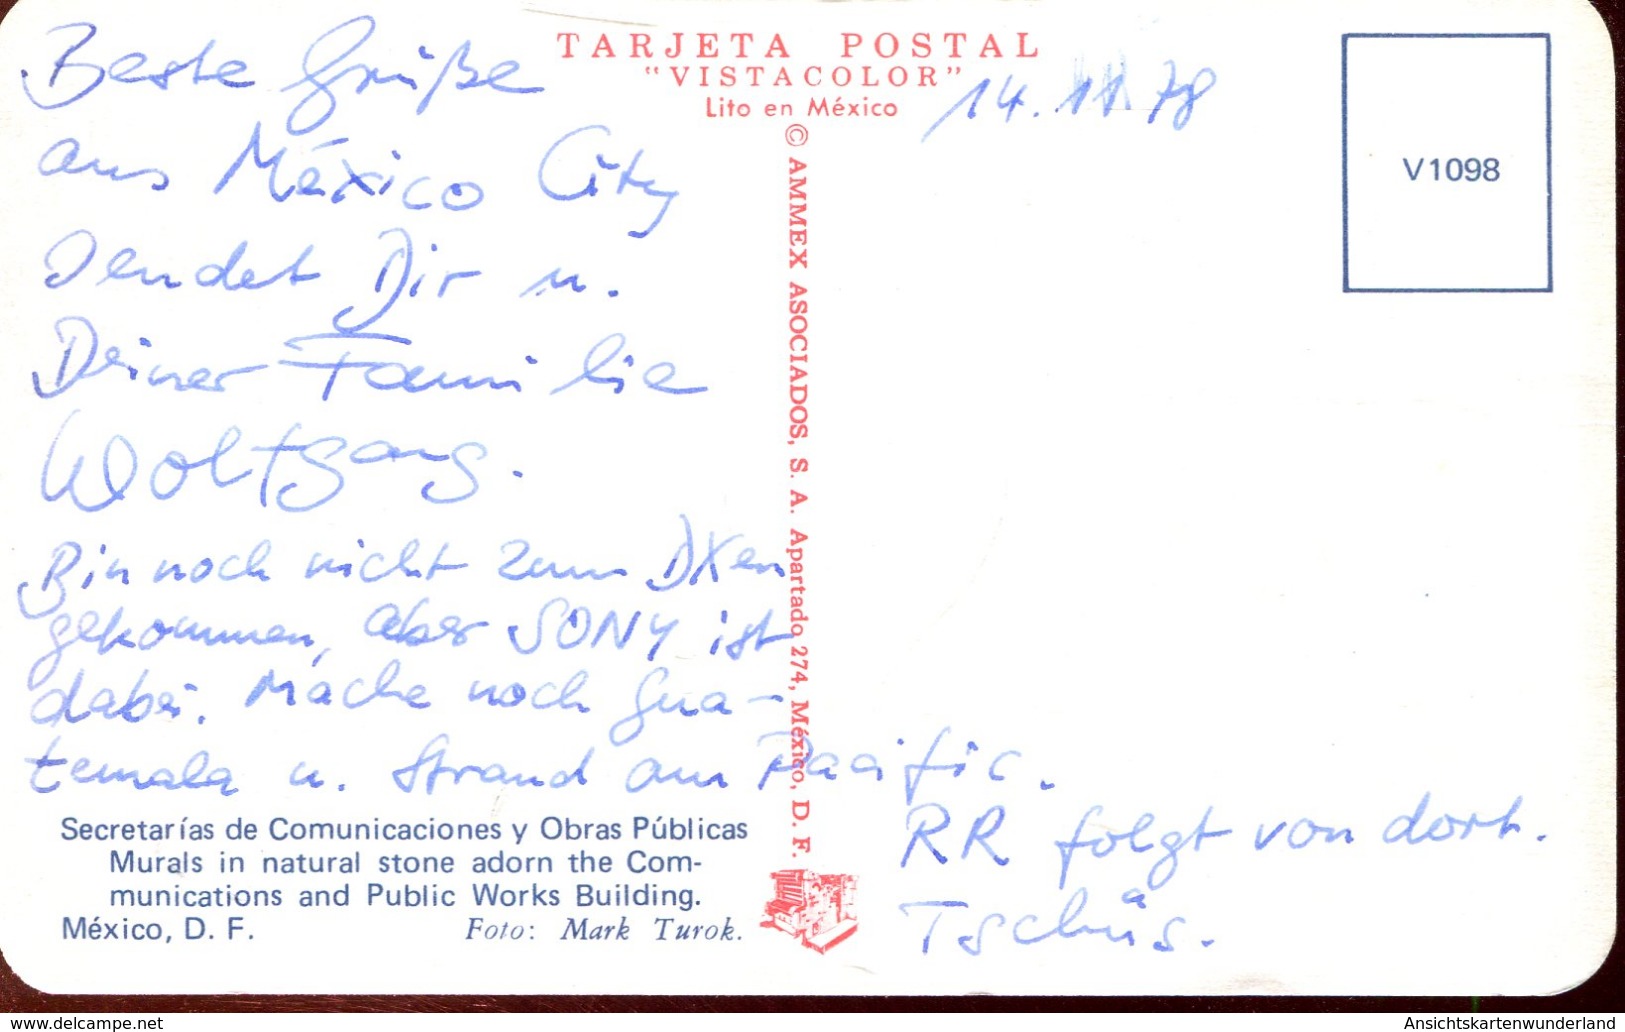 TARJETA POSTAL
"VISTACOLOR"
Lito en México
14.11.78
V1098
Beste Grüße
aus México City
sendet Dir u.
Deiner Familie
Wolfgang.
Bin noch nicht zum DXen
gekommen, aber SONY ist
dabei. Mache noch Gua-
temala u. Strand am Pacific.
RR folgt von dort.
Tschüs.
© AMMEX ASOCIADOS, S. A. Apartado 274, México, D. F.
Secretarías de Comunicaciones y Obras Públicas
Murals in natural stone adorn the Com-
munications and Public Works Building.
México, D. F. Foto: Mark Turok.
www.delcampe.net
Ansichtskartenwunderland